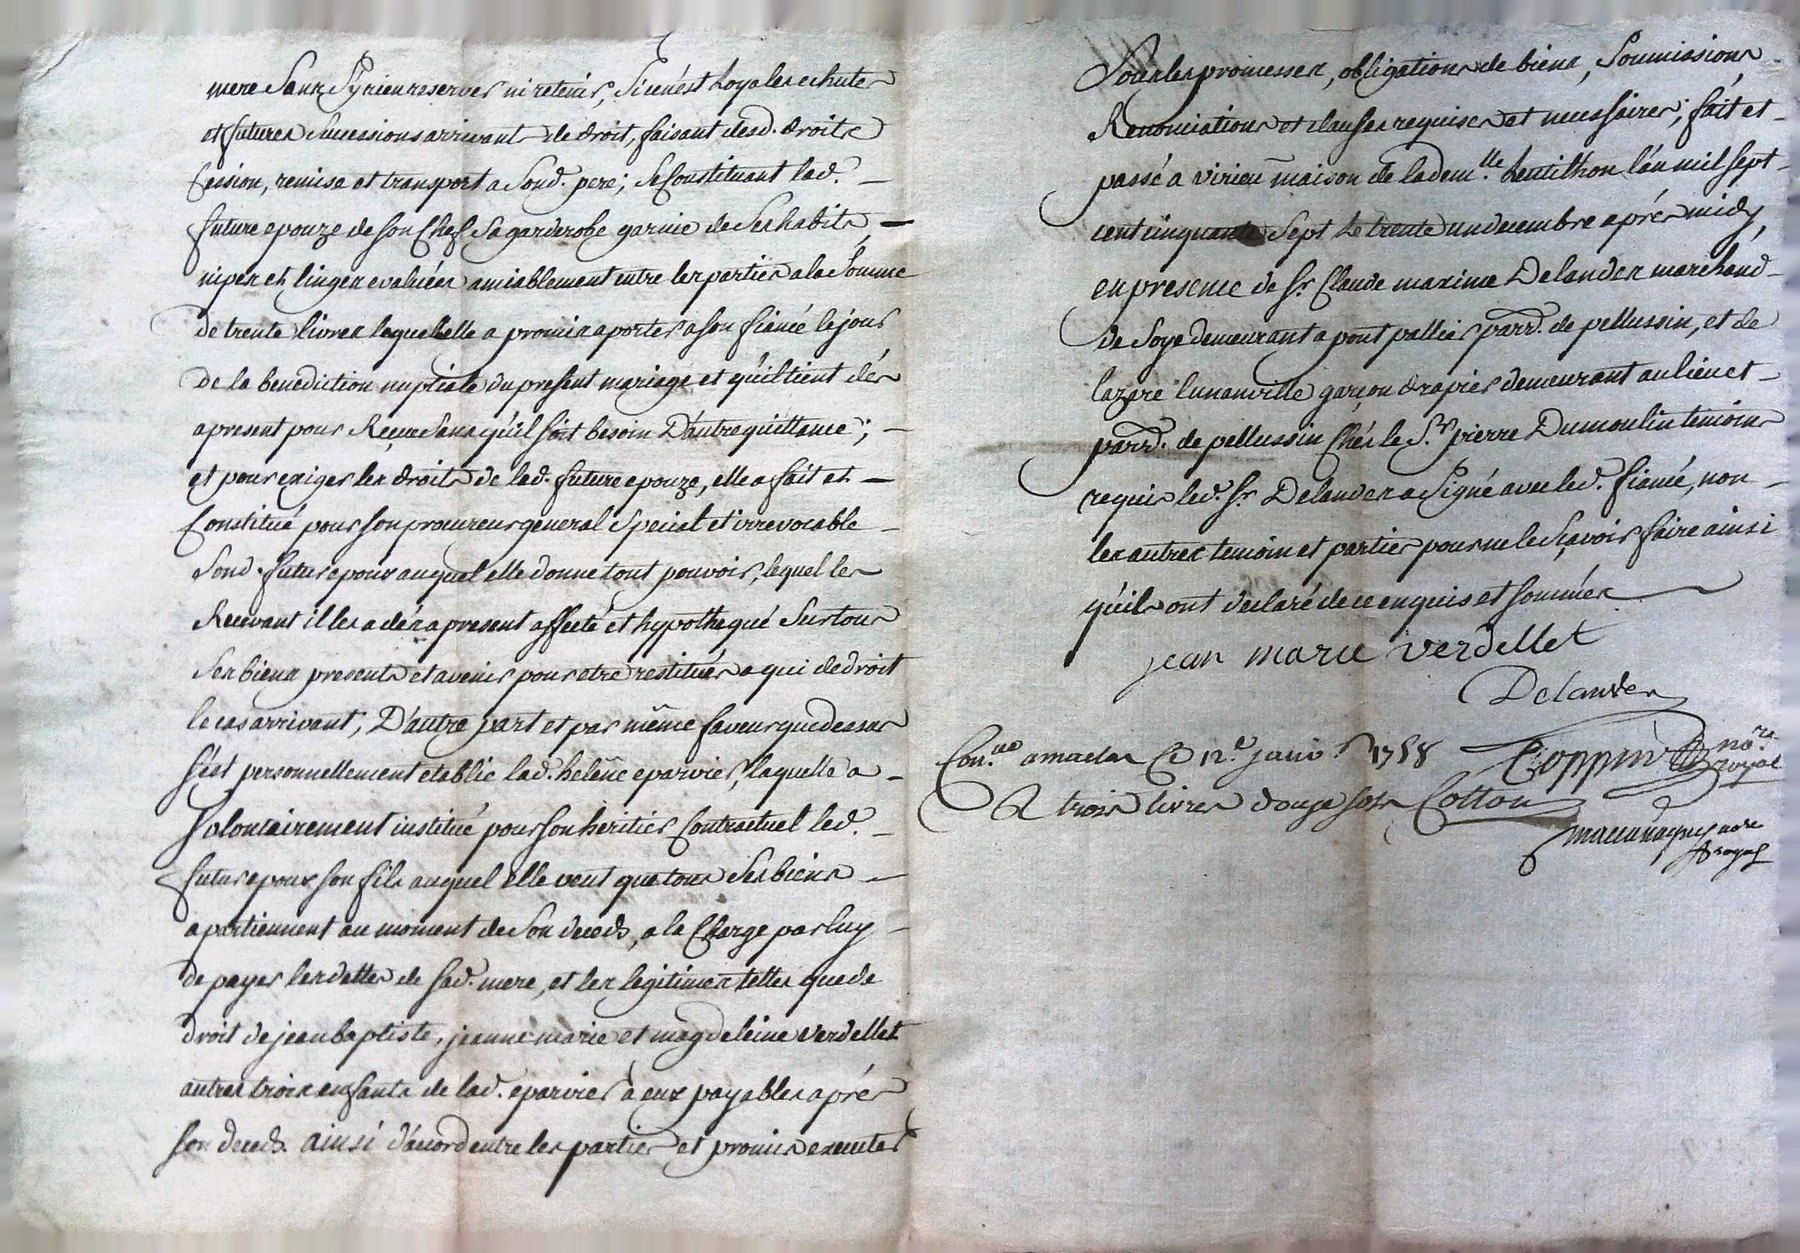 mere sans y rien reserver ni retenir, si ce n'est loyales echutes
et futures successions arrivant de droit, faisant desd. droits
Cession, remise et transport a sond. pere; se Constituant lad.
future epouze de son Chef sa garderobe garnie de ses habits,
nipes et linges evalüées amiablement entre les parties a la somme
de trente livres laquelle elle a promis aporter a son fiancé le jour
de la benediction nuptiale du present mariage et qu'il tient dés
a present pour Reçue sans qu'il soit besoin D'autre quittance;
et pour exiger les droits de lad. future epouze, elle a fait et
Constitué pour son procureur general special et irrevocable
sond. futur epoux auquel elle donne tout pouvoir, lequel les
Recevant il les a dés a present affecté et hypothequé sur tous
ses biens presents et avenir pour etre restitués a qui de droit
le cas arrivant; D'autre part et par même faveur que dessus
s'est personnellement etablie lad. helêne eparvier, laquelle a
volontairement institué pour son heritier Contractuel led.
futur epoux son fils auquel elle veut que tous ses biens
apartiennent au moment de son deceds, a la Charge par luy
de payer les dettes de sad. mere, et les legitimes telles que de
droit de jean baptiste, jeanne marie et magdeleine verdellet
autres trois enfants de lad. eparvier à eux payables aprés
son deceds. ainsi d'accord entre les parties et promis executer
sous les promesses, obligations de biens, soumissions,
Renonciations et clauses requises et necessaires; fait et
passé a virieu maison de la dem.lle Lentilhon l'an mil sept
cent cinquante sept le trente un decembre aprés midy,
en presence de sr. Claude maxime Delandes marchand
de soye demeurant a pont pallier parr. de pellussin, et de
lazare lunanville garçon drapier demeurant au lieu et
parr. de pellussin Chés le Sr. pierre Dumoulin temoins
requis led. sr. Delandes a signé avec led. fiancé, non
les autres temoin et parties pour ne le sçavoir faire ainsi
qu'ils ont declaré de ce enquis et sommés
jean marie verdellet
Delandes
Con.lle a maclas Ce 12.e janv. 1758 Choppin no.re royal
R trois livres douze sols Cotton
no.re royal